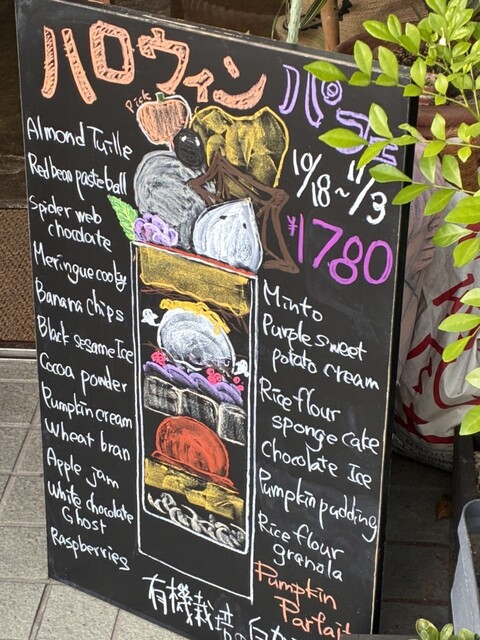 ハロウィン
パフェ
10/18~11/3
¥1780
Pick
Almond Tuille
Red bean paste ball
Spider web
chocolate
Meringue cooky
Banana chips
Black sesame Ice
Cocoa powder
Pumpkin cream
Wheat bran
Apple jam
White chocolate
Ghost
Raspberries
Minto
Purple sweet
potato cream
Rice flour
sponge cake
Chocolate Ice
Pumpkin pudding
Rice flour
granola
Pumpkin
Parfait
有機栽培